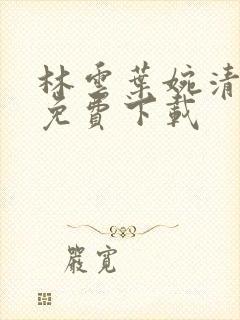 林雲葉婉清
免費下載
嚴寬